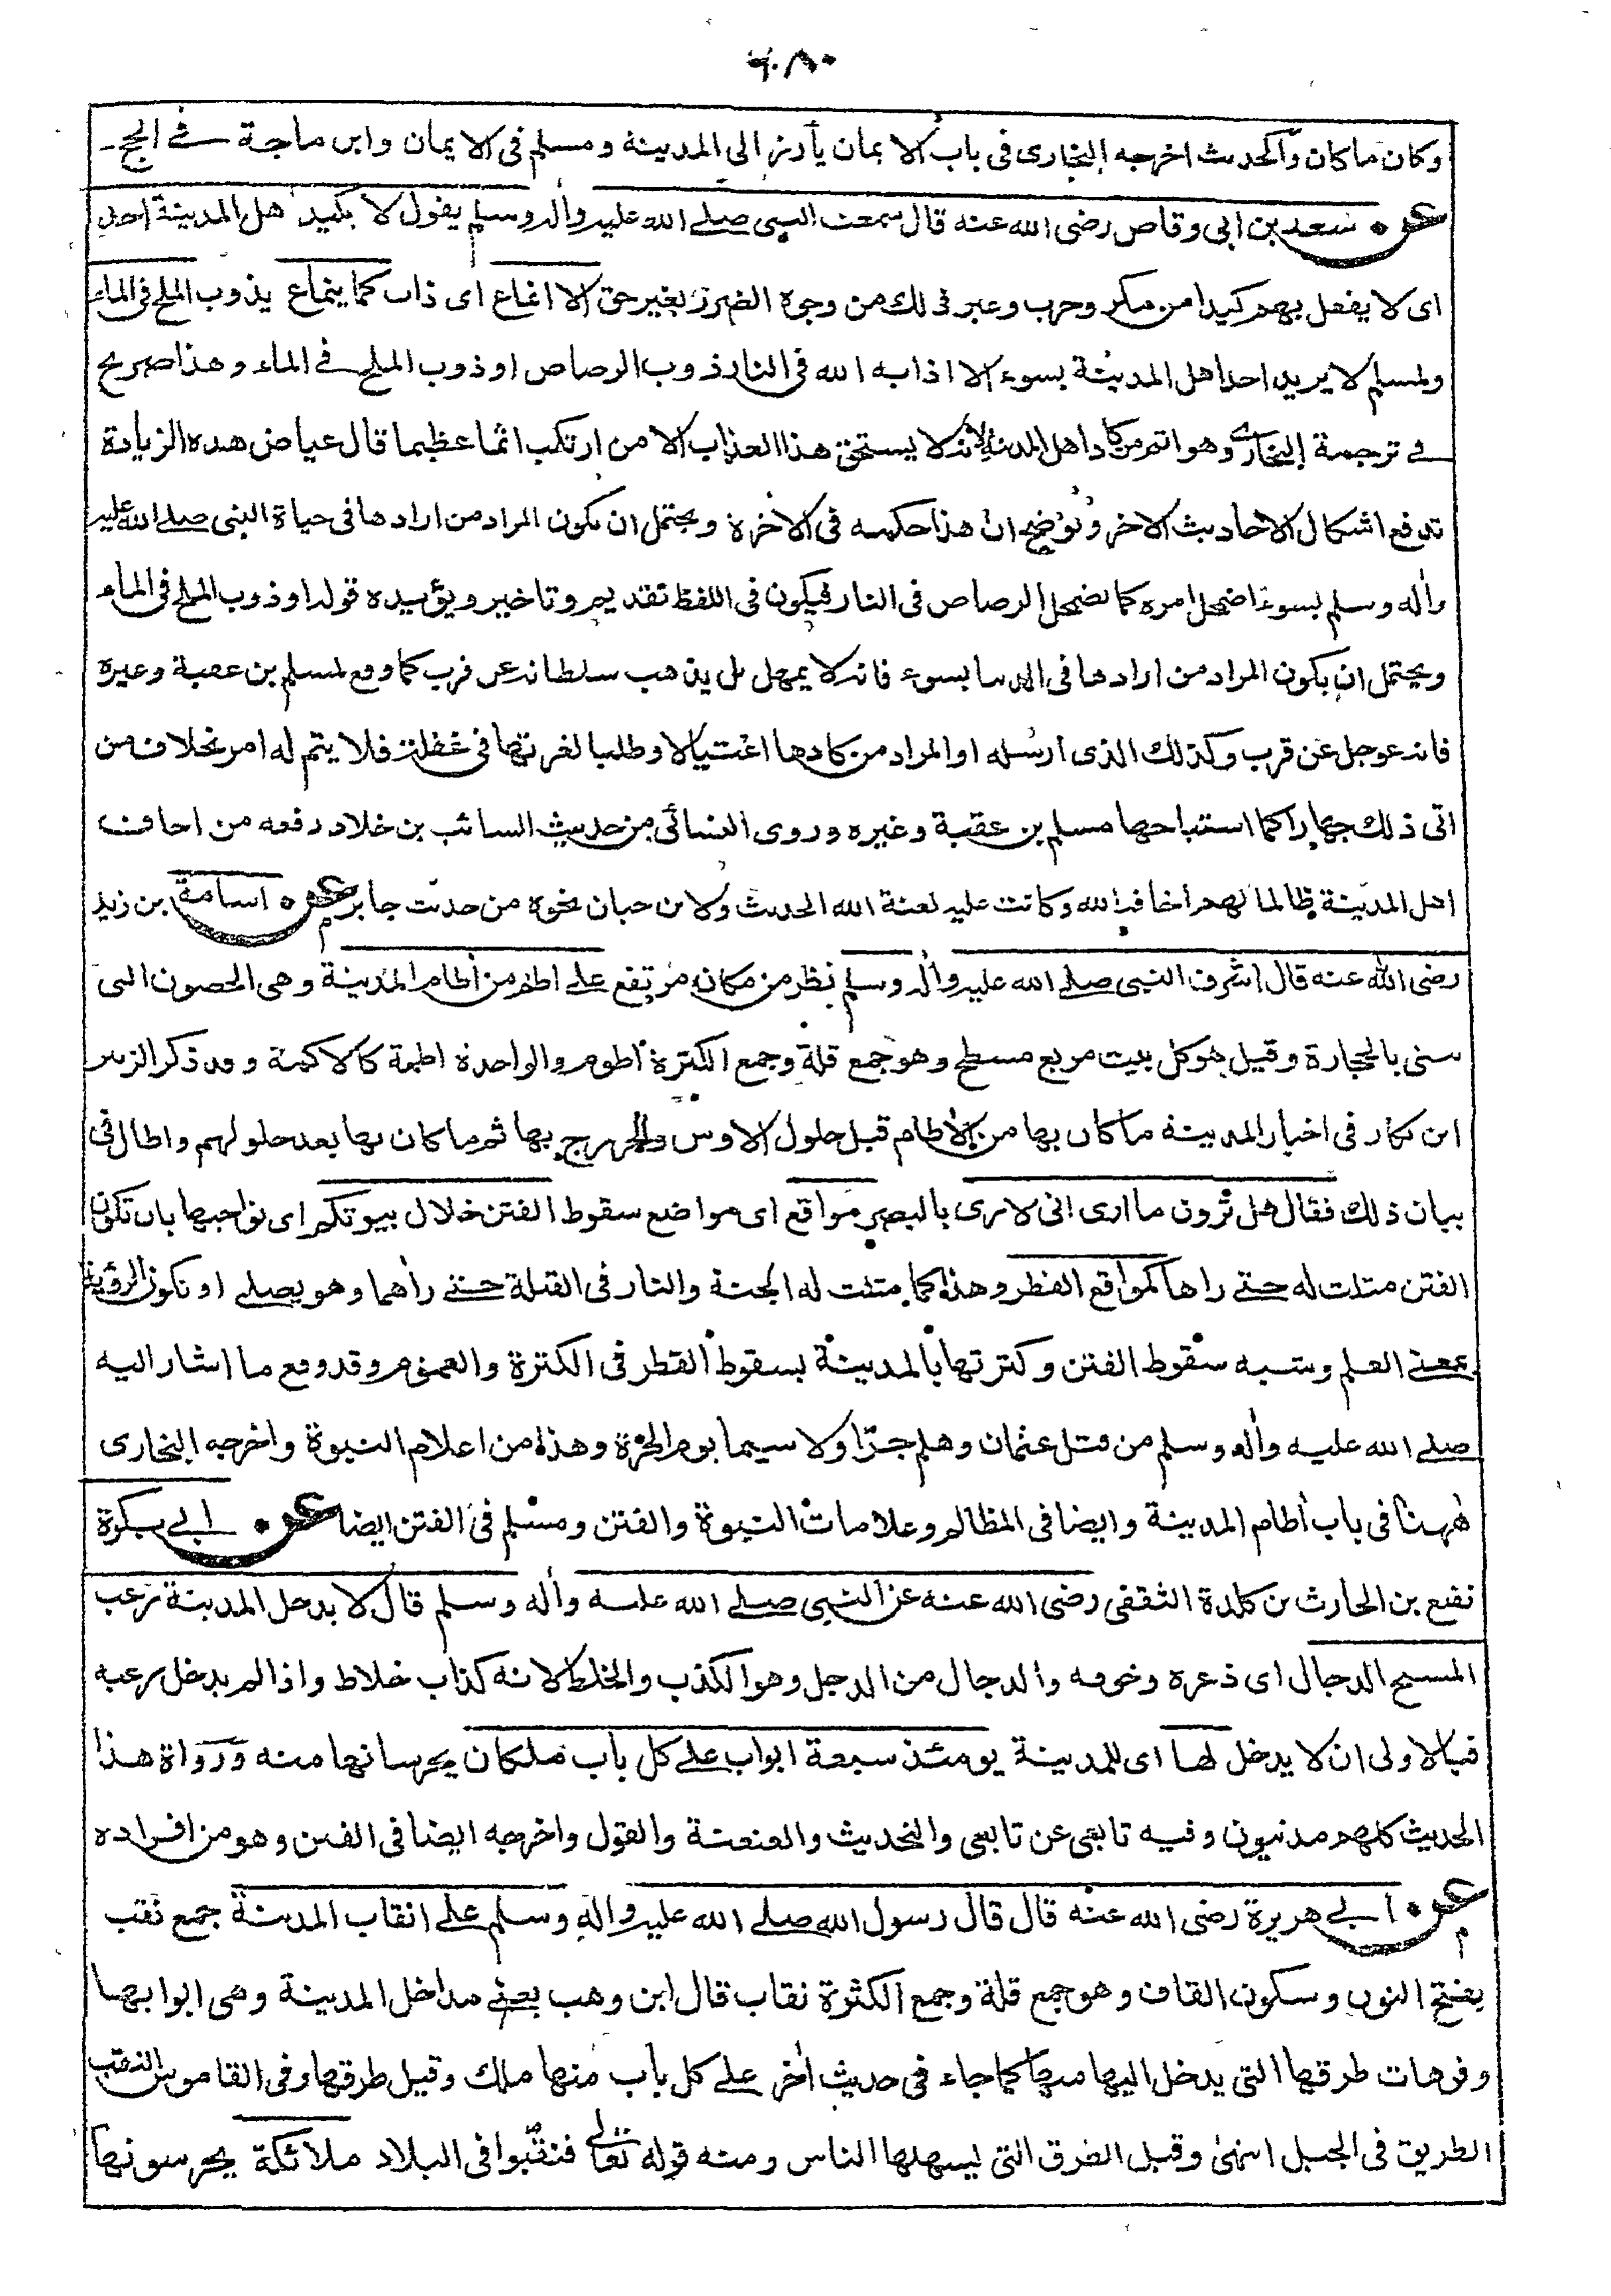 ٦٠٨
وكان ما كان والحديث اخرجه البخارى فى باب الايمان يأرز الى المدينة ومسلم فى الايمان وابن ماجة فى الحج
عن سعد بن ابى وقاص رضى الله عنه قال سمعت النبى صلى الله عليه وأله وسلم يقول لا يكيد اهل المدينة احد
اى لا يفعل بهم كيدا من مكر وحرب وغير ذلك من وجوه الضرر بغير حق الا انماع اى ذاب كما ينماع يذوب الملح فى الماء
ولمسلم لا يريد احد اهل المدينة بسوء الا اذابه الله فى النار ذوب الرصاص او ذوب الملح فى الماء وهذا صريح
فى ترجمة البخارى وهو اثم من كاد اهل المدينة لانه لا يستحق هذا العذاب الا من ارتكب اثما عظيما قال عياض هذه الزيادة
تدفع اشكال الاحاديث الاخر وتوضح ان هذا حكمه فى الاخرة ويحتمل ان يكون المراد من ارادها فى حياة النبى صلى الله عليه
وأله وسلم بسوء اضمحل امره كما يضمحل الرصاص فى النار فيكون فى اللفظ تقديم وتاخير ويؤيده قوله او ذوب الملح فى الماء
ويحتمل ان يكون المراد من ارادها فى الدنيا بسوء فانه لا يمهل بل يذهب سلطانه عن قرب كما وقع لمسلم بن عقبة وغيره
فانه عوجل عن قرب وكذلك الذى ارسله او المراد من كادها اغتيالا وطلبا لغرتها فى غفلة فلا يتم له امر بخلاف من
اتى ذلك جهارا كما استباحها مسلم بن عقبة وغيره وروى النسائى من حديث السائب بن خلاد رفعه من اخاف
اهل المدينة ظالما لهم اخافه الله وكانت عليه لعنة الله الحديث ولابن حبان نحوه من حديث جابر عن اسامة بن زيد
رضى الله عنه قال اشرف النبى صلى الله عليه وأله وسلم نظر من مكان مرتفع على اطم من أطام المدينة وهى الحصون التى
تبنى بالحجارة وقيل هو كل بيت مربع مسطح وهو جمع قلة وجمع الكثرة أطوم والواحدة اطمة كالاكمة وقد ذكر الزبير
ابن بكار فى اخبار المدينة ما كان بها من الأطام قبل حلول الاوس والخزرج بها ثم ما كان بها بعد حلولهم واطال فى
بيان ذلك فقال هل ترون ما ارى انى لارى بالبصر مواقع اى مواضع سقوط الفتن خلال بيوتكم اى نواحيها بان تكون
الفتن مثلت له حتى راها كمواقع القطر وهذا كما مثلت له الجنة والنار فى القبلة حتى رأهما وهو يصلى او تكون الرؤية
بمعنى العلم وشبه سقوط الفتن وكثرتها بالمدينة بسقوط القطر فى الكثرة والعموم وقد وقع ما اشار اليه
صلى الله عليه وأله وسلم من قتل عثمان وهلم جرا ولا سيما يوم الحرة وهذا من اعلام النبوة واخرجه البخارى
ههنا فى باب أطام المدينة وايضا فى المظالم وعلامات النبوة والفتن ومسلم فى الفتن ايضا عن ابى بكرة
نفيع بن الحارث بن كلدة الثقفى رضى الله عنه عن النبى صلى الله عليه وأله وسلم قال لا يدخل المدينة رعب
المسيح الدجال اى ذعره وخوفه والدجال من الدجل وهو الكذب والخلط لانه كذاب خلاط واذا لم يدخل رعبه
فبالاولى ان لا يدخل لها اى للمدينة يومئذ سبعة ابواب على كل باب ملكان يحرسانها منه ورواة هذا
الحديث كلهم مدنيون وفيه تابعى عن تابعى والتحديث والعنعنة والقول واخرجه ايضا فى الفتن وهو من افراده
عن ابى هريرة رضى الله عنه قال قال رسول الله صلى الله عليه وأله وسلم على انقاب المدينة جمع نقب
بفتح النون وسكون القاف وهو جمع قلة وجمع الكثرة نقاب قال ابن وهب يعنى مداخل المدينة وهى ابوابها
وفوهات طرقها التى يدخل اليها منها كما جاء فى حديث أخر على كل باب منها ملك وقيل طرقها وفى القاموس النقب
الطريق فى الجبل انتهى وقيل الطرق التى يسهلها الناس ومنه قوله تعالى فنقبوا فى البلاد ملائكة يحرسونها